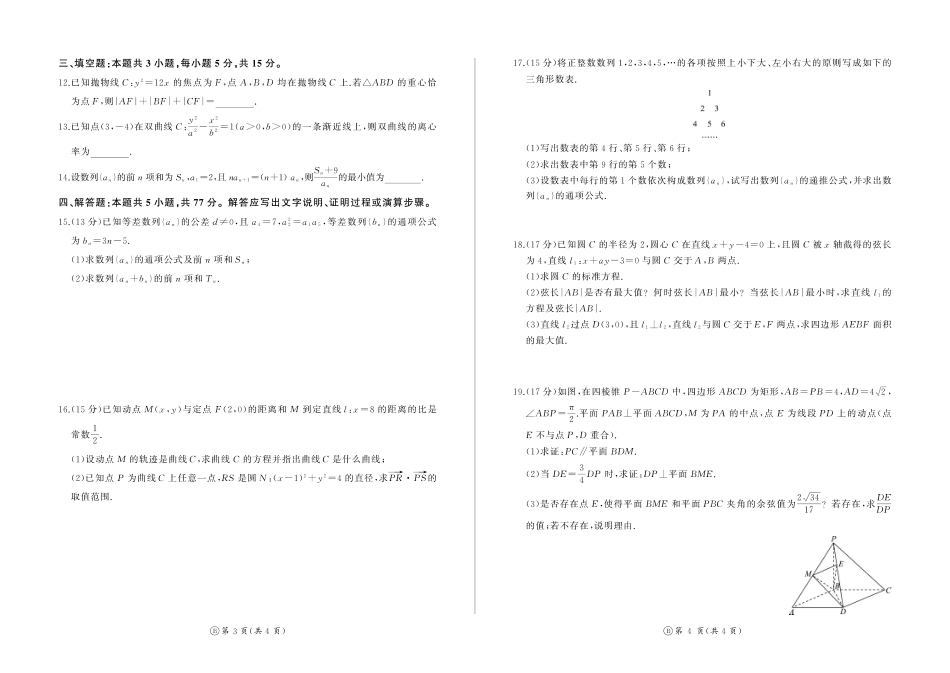 三、填空题:本题共 3 小题,每小题 5 分,共 15 分。
12.已知抛物线 C:y²=12x 的焦点为 F,点 A,B,D 均在抛物线 C 上.若△ABD 的重心恰
为点 F,则|AF|+|BF|+|CF|=________.
13.已知点(3,-4)在双曲线 C:y²/a²-x²/b²=1(a>0,b>0)的一条渐近线上,则双曲线的离心
率为________.
14.设数列{aₙ}的前 n 项和为 Sₙ,a₁=2,且 naₙ₊₁=(n+1) aₙ,则(Sₙ+9)/aₙ的最小值为________.
四、解答题:本题共 5 小题,共 77 分。解答应写出文字说明、证明过程或演算步骤。
15.(13 分)已知等差数列{aₙ}的公差 d≠0,且 a₄=7,a₂²=a₁a₅,等差数列{bₙ}的通项公式
为 bₙ=3n-5.
(1)求数列{aₙ}的通项公式及前 n 项和 Sₙ;
(2)求数列{aₙ+bₙ}的前 n 项和 Tₙ.
16.(15 分)已知动点 M(x,y)与定点 F(2,0)的距离和 M 到定直线 l:x=8 的距离的比是
常数1/2.
(1)设动点 M 的轨迹是曲线 C,求曲线 C 的方程并指出曲线 C 是什么曲线;
(2)已知点 P 为曲线 C 上任意一点,RS 是圆 N:(x-1)²+y²=4 的直径,求PR→·PS→的
取值范围.
Ⓑ第 3 页(共 4 页)
17.(15 分)将正整数数列 1,2,3,4,5,…的各项按照上小下大、左小右大的原则写成如下的
三角形数表.
1
2 3
4 5 6
……
(1)写出数表的第 4 行、第 5 行、第 6 行;
(2)求出数表中第 9 行的第 5 个数;
(3)设数表中每行的第 1 个数依次构成数列{aₙ},试写出数列{aₙ}的递推公式,并求出数
列{aₙ}的通项公式.
18.(17 分)已知圆 C 的半径为 2,圆心 C 在直线 x+y-4=0 上,且圆 C 被 x 轴截得的弦长
为 4,直线 l₁:x+ay-3=0 与圆 C 交于 A,B 两点.
(1)求圆 C 的标准方程.
(2)弦长|AB|是否有最大值?何时弦长|AB|最小?当弦长|AB|最小时,求直线 l₁的
方程及弦长|AB|.
(3)直线 l₂过点 D(3,0),且 l₁⊥l₂,直线 l₂与圆 C 交于 E,F 两点,求四边形 AEBF 面积
的最大值.
19.(17 分)如图,在四棱锥 P-ABCD 中,四边形 ABCD 为矩形,AB=PB=4,AD=4√2,
∠ABP=π/2.平面 PAB⊥平面 ABCD,M 为 PA 的中点,点 E 为线段 PD 上的动点(点
E 不与点 P,D 重合).
(1)求证:PC∥平面 BDM.
(2)当 DE=3/4DP 时,求证:DP⊥平面 BME.
(3)是否存在点 E,使得平面 BME 和平面 PBC 夹角的余弦值为2√34/17?若存在,求DE/DP
的值;若不存在,说明理由.
P
E
M
B
C
A
D
Ⓑ第 4 页(共 4 页)